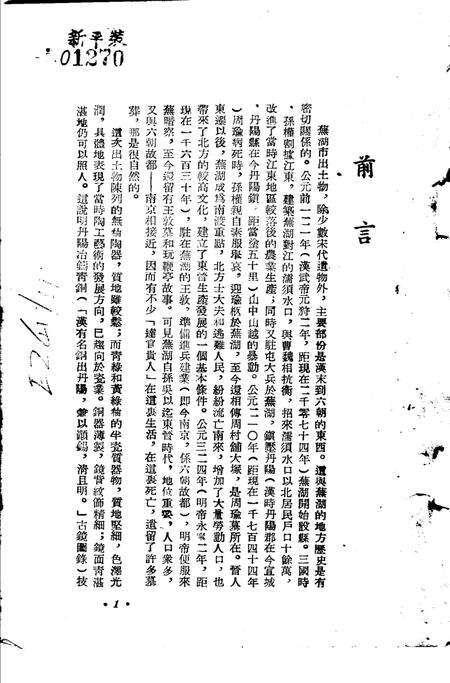 新平装
01270
前言
蕪湖市出土物，除少數宋代遺物外，主要部份是漢末到六朝的東西。這與蕪湖的地方歷史是有
密切關係的。公元前一二一年（漢武帝元狩二年，距現在二千零七十四年）蕪湖開始設縣。三國時
、孫權割據江東，建築蕪湖對江的濡須水口，與曹魏相抗衡，招來濡須水口以北居民戶口十餘萬，
改進了當時江東地區較落後的農業生產；同時又駐屯大兵於蕪湖，鎮壓丹陽（漢時丹陽郡在今宣城
、丹陽縣在今丹陽鎮，距當塗五十里）山中山越的暴動。公元二一〇年（距現在一千七百四十四年
）周瑜病死時，孫權親自素服舉哀，迎瑜柩於蕪湖，至今還相傳周村舖大塚，是周瑜墓所在。晉人
東遷以後，蕪湖成爲南渡重點，北方士大夫和逃難人民，紛紛流亡南來，增加了大量勞動人口，也
帶來了北方的較高文化，建立了東晉生產發展的一個基本條件。公元三二四年（明帝永昌二年，距
現在一千六百三十年），駐在蕪湖的王敦，準備進兵建業（即今南京，係六朝故都），明帝便服來
蕪暗察，至今還留有王敦墓和玩鞭亭故事。可見蕪湖自孫吳以迄東晉時代，地位重要，人口衆多，
又與六朝故都——南京相接近，因而有不少「達官貴人」在這裏生活，在這裏死亡，遺留了許多墓
葬，那是很自然的。
這次出土物陳列的無釉陶器，質地雖較鬆；而青綠和黃綠釉的半瓷質器物，質地堅細，色澤光
潤，具體地表現了當時陶工藝術的發展方向，已趨向於瓷業。銅器薄製，鏡背紋飾精細；鏡面青湛
湛地仍可以照人。這說明丹陽冶鑄青銅（「漢有名銅出丹陽，叅以銀錫，清且明。」古鏡圖錄）技
·1·